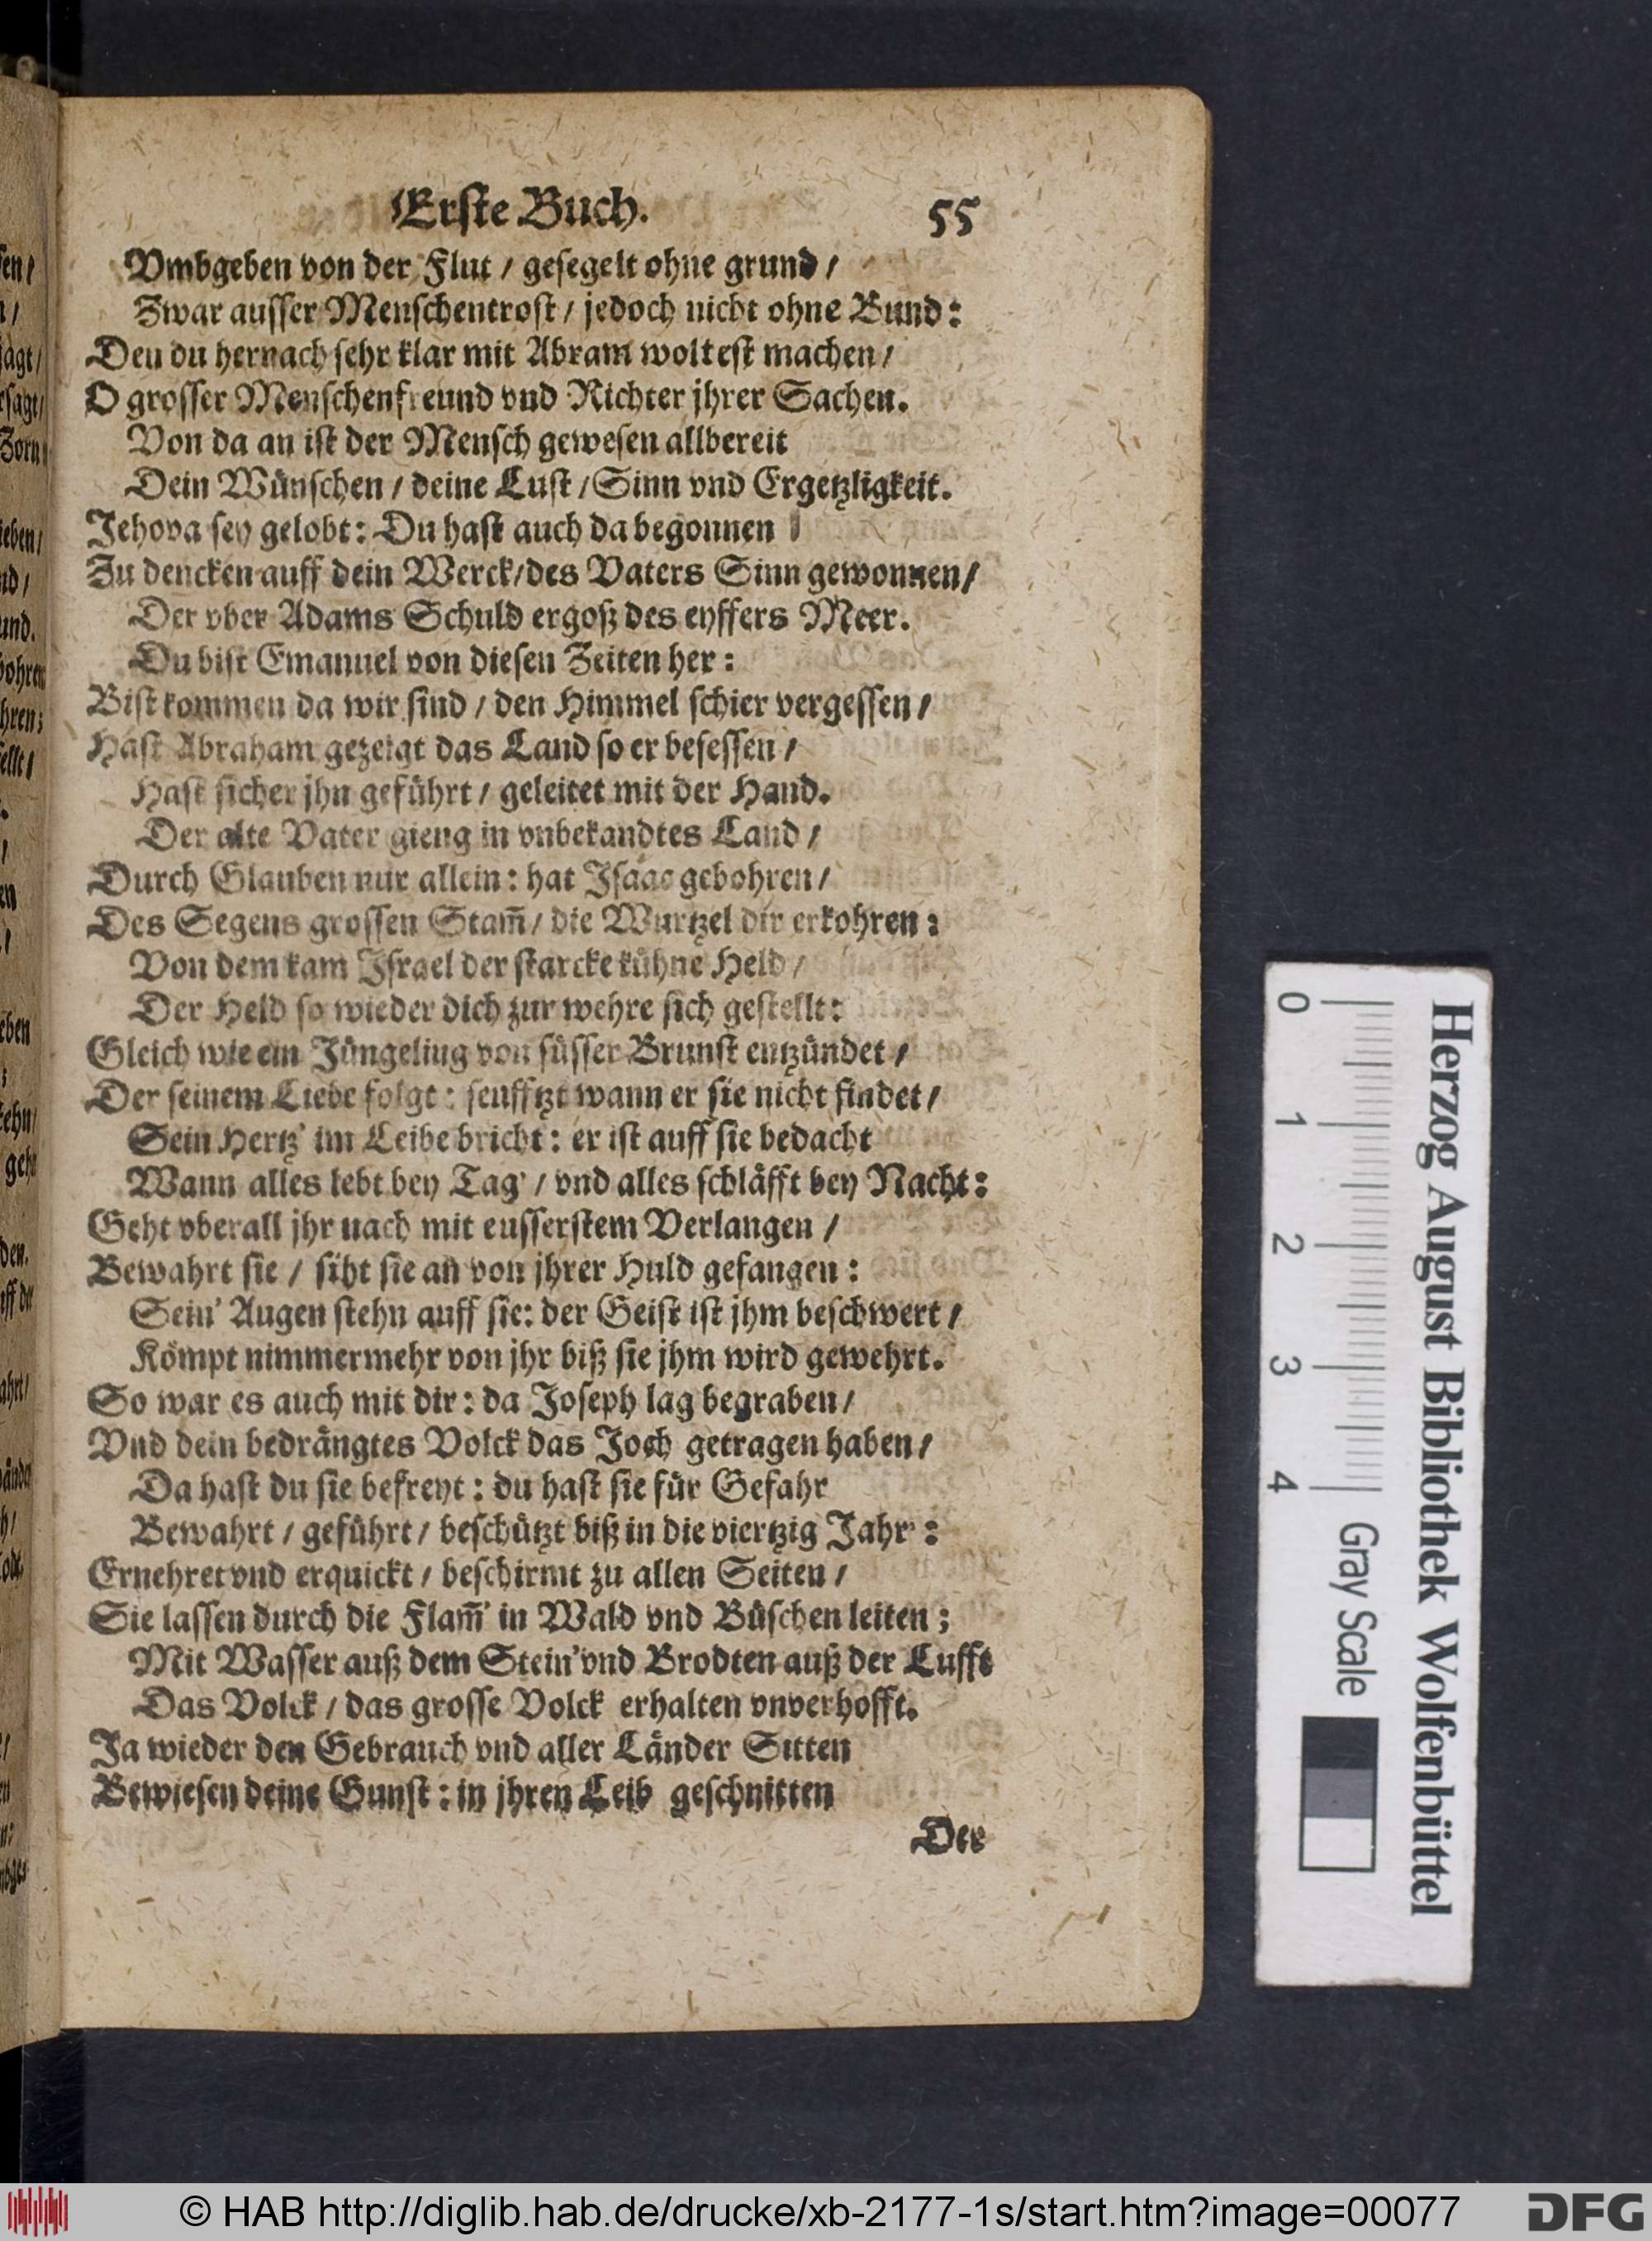 Erste Buch. 55
Vmbgeben von der Flut / gesegelt ohne grund /
Zwar ausser Menschentrost / jedoch nicht ohne Bund:
Den du hernach sehr klar mit Abram woltest machen /
O grosser Menschenfreund vnd Richter jhrer Sachen.
Von da an ist der Mensch gewesen allbereit
Dein Wünschen / deine Lust / Sinn vnd Ergetzligkeit.
Jehova sey gelobt: Du hast auch da begonnen
Zu dencken auff dein Werck/des Vaters Sinn gewonnen/
Der vber Adams Schuld ergoß des eyffers Meer.
Du bist Emanuel von diesen Zeiten her:
Bist kommen da wir sind / den Himmel schier vergessen /
Hast Abraham gezeigt das Land so er besessen /
Hast sicher jhn geführt / geleitet mit der Hand.
Der alte Vater gieng in vnbekandtes Land /
Durch Glauben nur allein: hat Isaac gebohren /
Des Segens grossen Stam̃ / die Wurtzel dir erkohren:
Von dem kam Israel der starcke kühne Held /
Der Held so wieder dich zur wehre sich gestellt:
Gleich wie ein Jüngeling von süsser Brunst entzündet /
Der seinem Liebe folgt: seufftzt wann er sie nicht findet /
Sein Hertz' im Leibe bricht: er ist auff sie bedacht
Wann alles lebt bey Tag' / vnd alles schläfft bey Nacht:
Geht vberall jhr nach mit eusserstem Verlangen /
Bewahrt sie / siht sie an von jhrer Huld gefangen:
Sein' Augen stehn auff sie: der Geist ist jhm beschwert /
Kömpt nimmermehr von jhr biß sie jhm wird gewehrt.
So war es auch mit dir: da Joseph lag begraben /
Vnd dein bedrängtes Volck das Joch getragen haben /
Da hast du sie befreyt: du hast sie für Gefahr
Bewahrt / geführt / beschützt biß in die viertzig Jahr':
Ernehret vnd erquickt / beschirmt zu allen Seiten /
Sie lassen durch die Flam̃' in Wald vnd Büschen leiten;
Mit Wasser auß dem Stein' vnd Brodten auß der Lufft
Das Volck / das grosse Volck erhalten vnverhofft.
Ja wieder den Gebrauch vnd aller Länder Sitten
Bewiesen deine Gunst: in jhren Leib geschnitten
Der
Herzog August Bibliothek Wolfenbüttel
0 1 2 3 4 Gray Scale
© HAB http://diglib.hab.de/drucke/xb-2177-1s/start.htm?image=00077
DFG